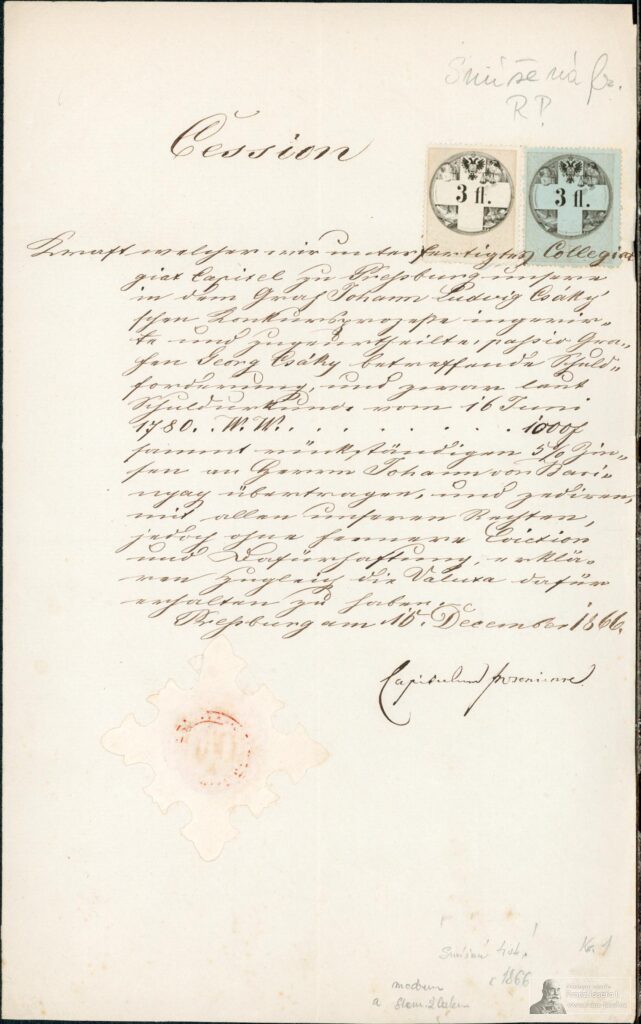 Smíšená fr.
R P.
Cession
3 fl.
3 fl.
Kraft welcher wir unterfertigtes Collegiat
giat Capitel zu Preßburg unsere
in dem Graf Johann Ludwig Csáky'
schen Konkursprozeße ingerir-
te und zugeurtheilte, passiv Gra-
fen Georg Csáky betreffende Schuld-
forderung, und zwar laut
Schuldurkunde vom 16 Juni
1780. W.W. . . . . . . . . 1000f
sammt rückständigen 5% Zin-
sen an Herrn Johann von
übertragen, und zediren,
mit allen unseren Rechten,
jedoch ohne fernere Eviction
und Dafürhaftung, erklä-
ren zugleich die Valuta dafür
erhalten zu haben.
Preßburg am 15. December 1866.
Capitulum Posoniense
r 1866